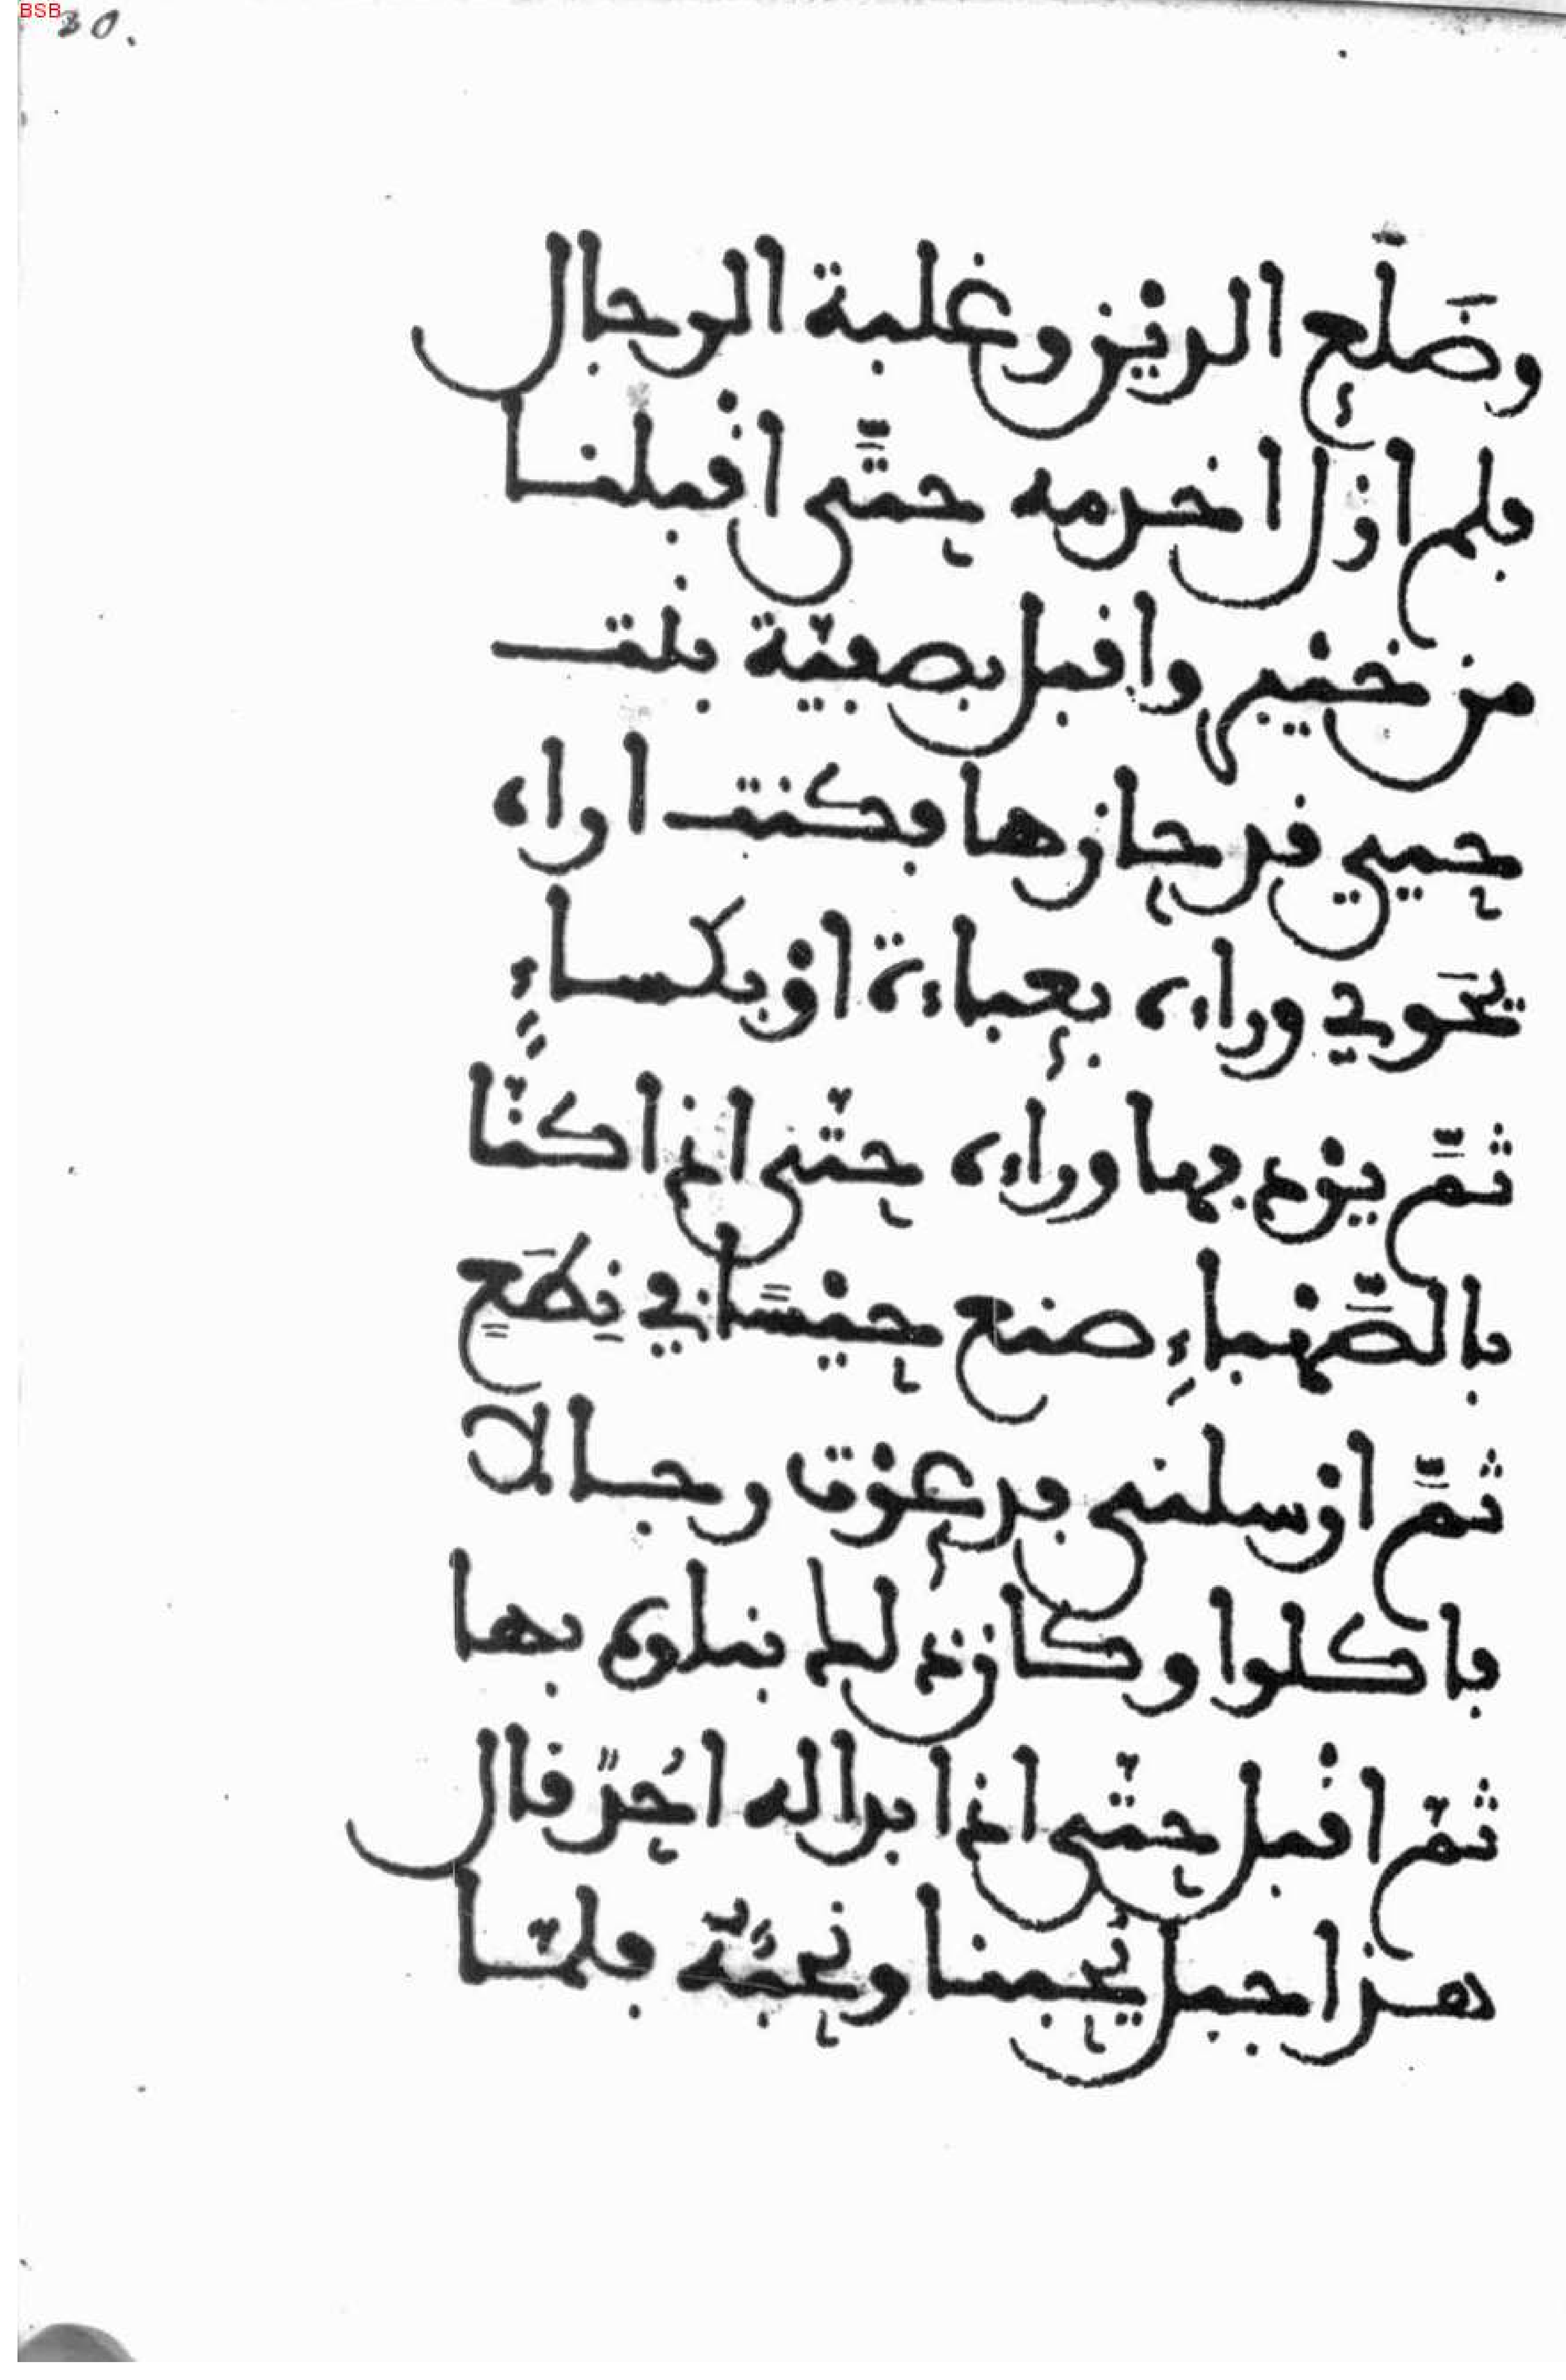 30.
BSB
وضَلَع الديْن وغلبة الرجال
فلم ازَل اخدمه حتَّى اقْبلنا
من خيْبر واقبل بصفيّة بنت
حيي قد حازها فكنت اراه
يحَوي وراءه بعباءة اوْ بكساءٍ
ثمَّ يرْدفها وراءه حتّى اذا كنّا
بالصَّهْباءِ صنع حيْسًا في نِطَعٍ
ثمَّ ارْسلني فدعوْت رجالا
فاكلوا وكان ذلك بناؤه بها
ثمّ اقْبل حتّى اذا بدا له احُدٌ قال
هذا جبل يُحبنا ونحبُّه فلمّا